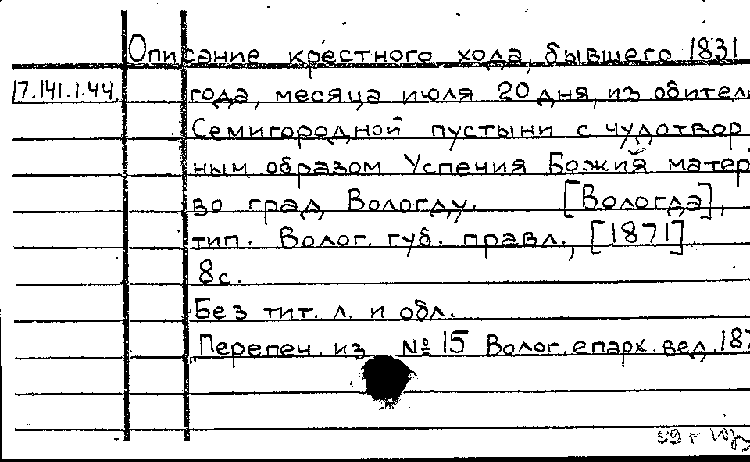 Описание крестного хода, бывшего 1831
17.141.1.44. года, месяца июля 20 дня, из обител
Семигородной пустыни с чудотвор
ным образом Успения Божий матер
во град Вологду. [Вологда],
тип. Волог. губ. правл., [1871]
8с.
Без тит. л. и обл.
Перепеч. из №15 Волог. епарх. вед. 187